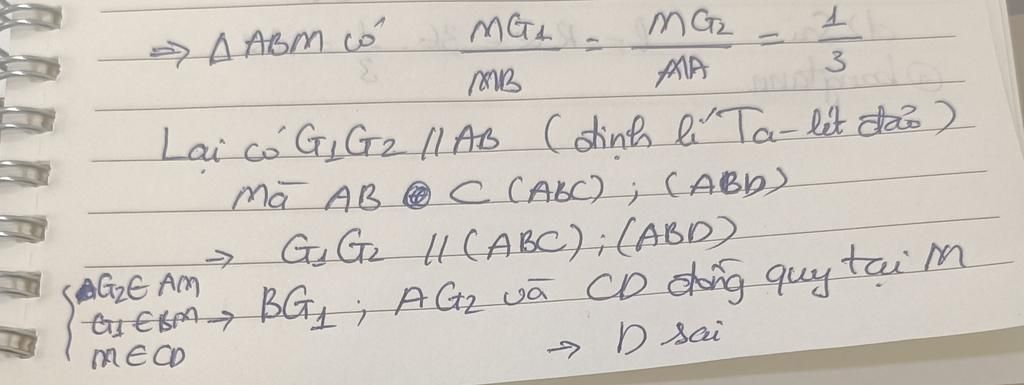 => Δ ABM có MG1/MB = MG2/MA = 1/3
Lại có G1G2 // AB (định lí Ta-lét đảo)
Mà AB ⊂ (ABC) ; (ABD)
→ G1G2 // (ABC) ; (ABD)
{ G2 ∈ AM
G1 ∈ BM → BG1 ; AG2 và CD đồng quy tại M
M ∈ CD
→ D sai